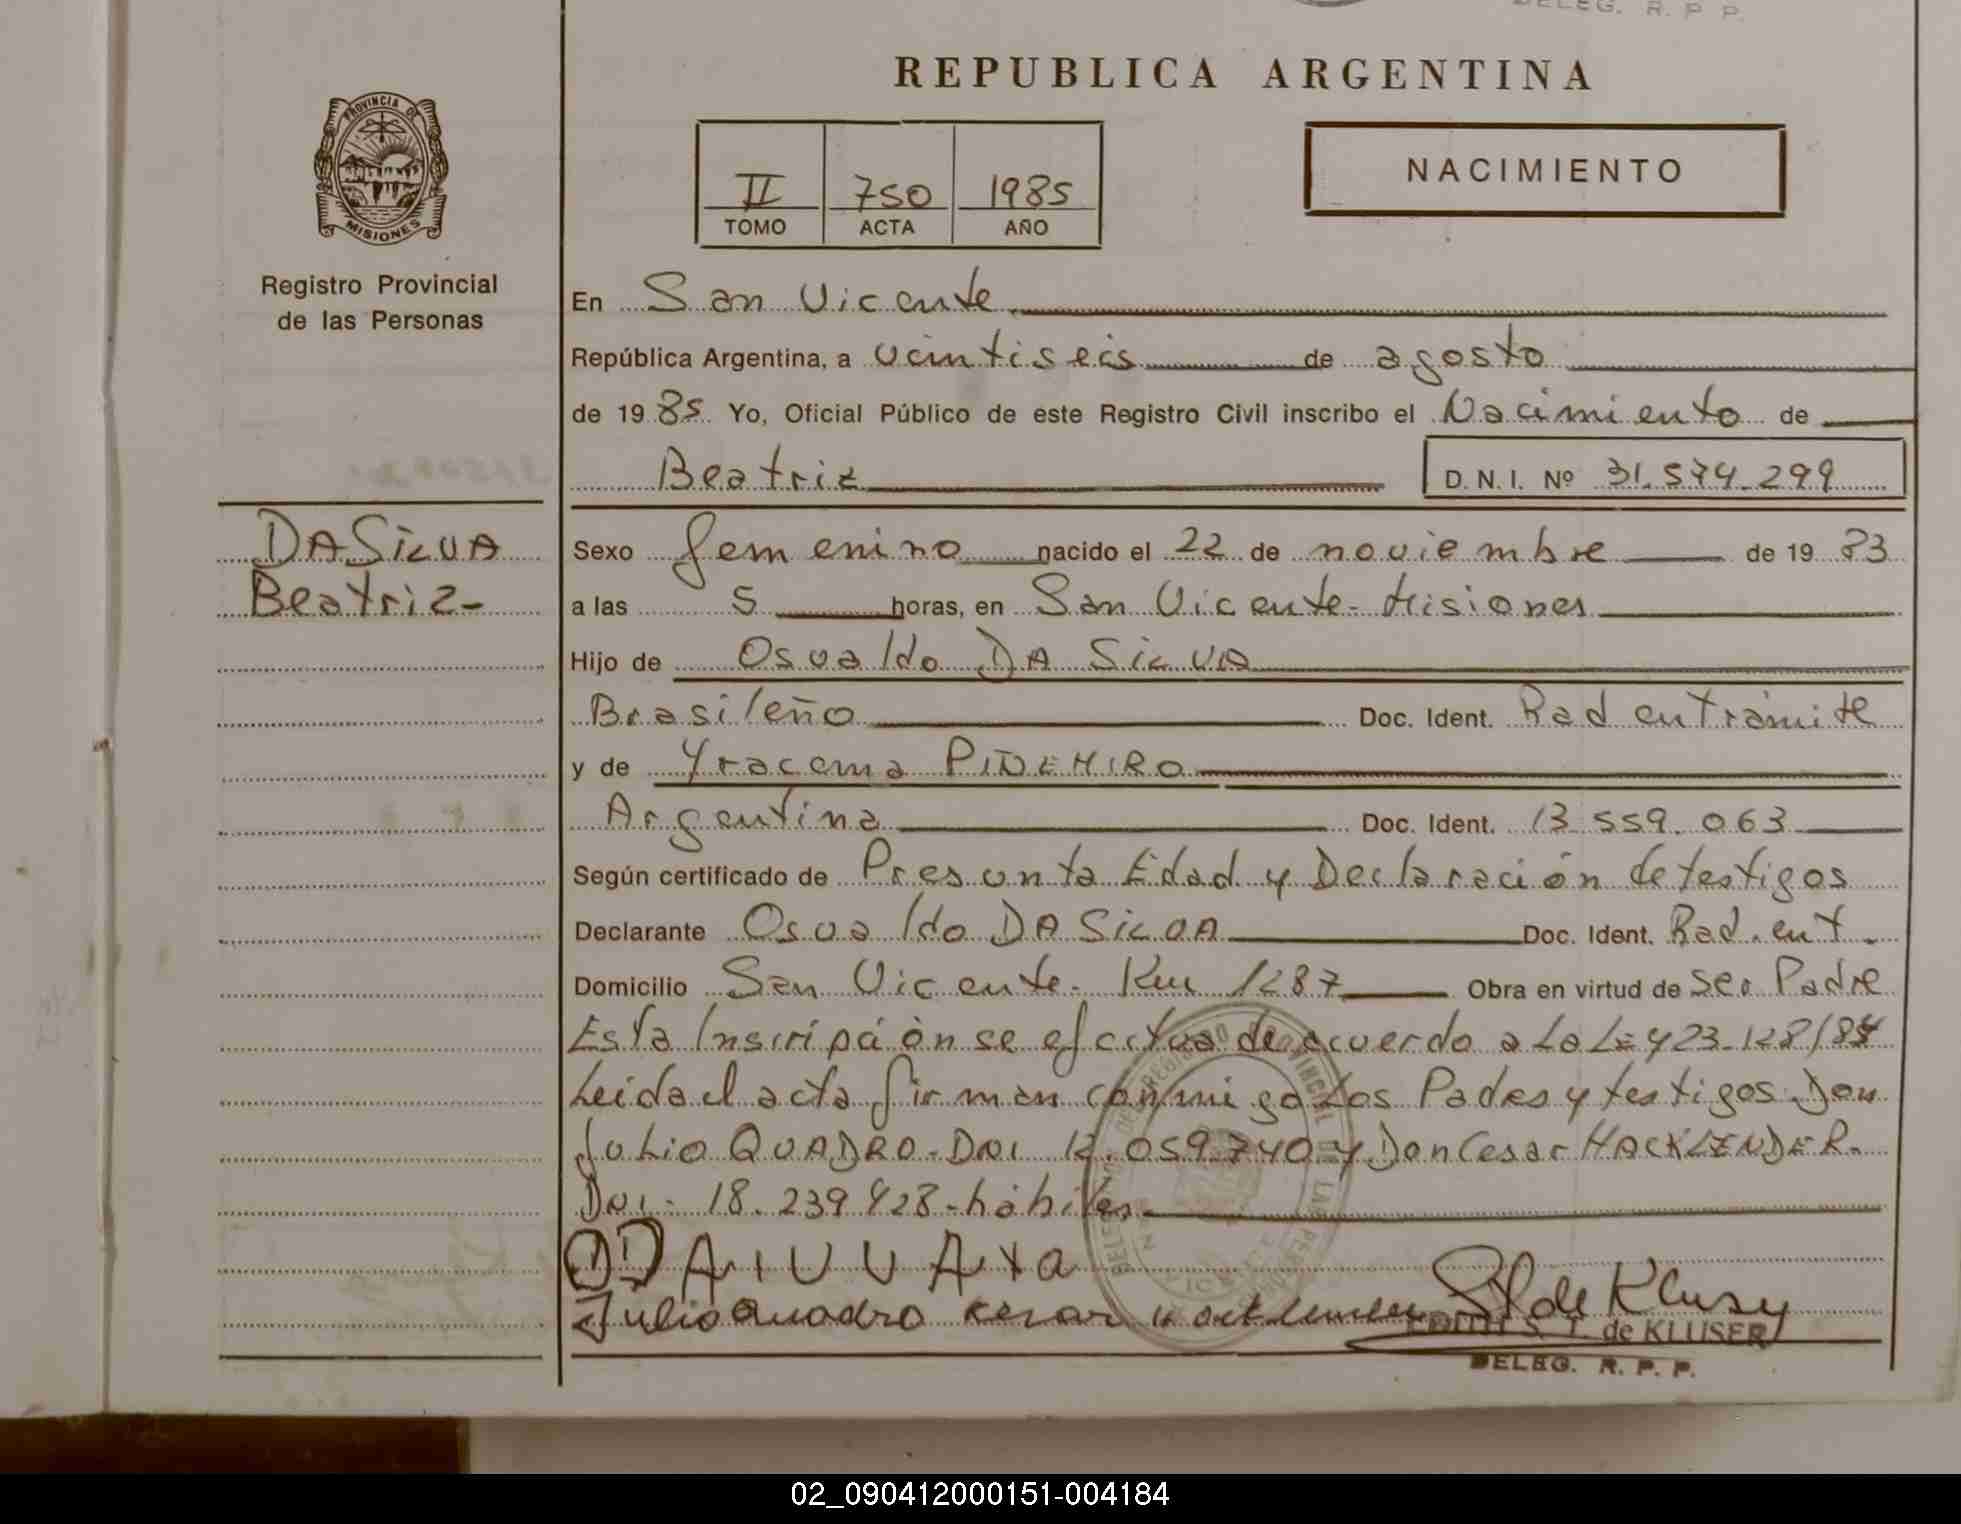 DELEG. R. P. P.
REPUBLICA ARGENTINA
PROVINCIA DE
MISIONES
II 750 1985
TOMO ACTA AÑO
NACIMIENTO
Registro Provincial
de las Personas
En San Vicente
República Argentina, a veintiseis de agosto
de 1985. Yo, Oficial Público de este Registro Civil inscribo el Nacimiento de
Beatriz D. N. I. Nº 31.574.299
DA SILVA
Beatriz-
Sexo femenino nacido el 22 de noviembre de 19 83
a las 5 horas, en San Vicente - Misiones
Hijo de Osvaldo DA SILVA
Brasileño Doc. Ident. Rad en trámite
y de Yracema PIÑEHIRO
Argentina Doc. Ident. 13.559.063
Según certificado de Presunta Edad y Declaración de testigos
Declarante Osvaldo DA SILVA Doc. Ident. Rad. en t.
Domicilio San Vicente - Km 1287 Obra en virtud de ser Padre
Esta Inscripción se efectua de acuerdo a La Ley 23.128/84
Leida el acta firman conmigo Los Padres y testigos Don
Julio QUADRO - DNI 12.059.740 y Don Cesar HACKLENDER.
DNI - 18.239.428 - hábiles
Julio Quadro
EDITH S. T. de KLUSER
DELEG. R. P. P.
02_090412000151-004184